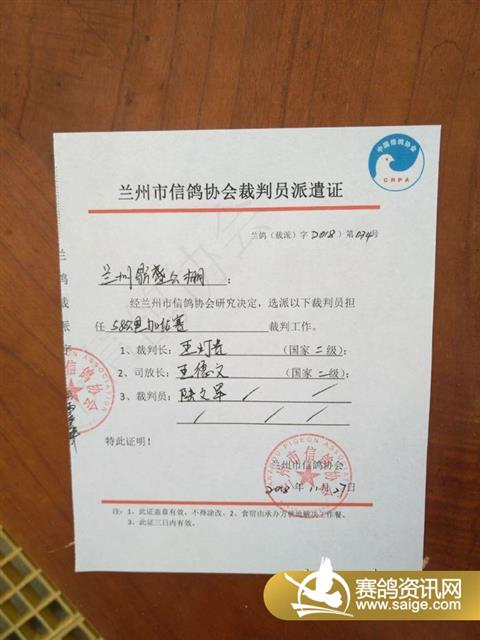 中国信鸽协会
CRPA
兰州市信鸽协会裁判员派遣证
兰鸽（裁派）字 2018 ）第 034号
兰州鼎盛公棚：
经兰州市信鸽协会研究决定，选派以下裁判员担
任 加站赛 裁判工作。
1、裁判长： （国家 二级）；
2、司放长：王德文 （国家 二级）；
3、裁判员：陆文军
特此证明！
兰州市信鸽协会
2018 年 11 月 27 日
注：1、此证盖章有效，不得涂改。2、食宿由承办方就地解决工作餐。
3、此证三日内有效。
兰鸽裁派字
赛鸽资讯网
www.saige.com